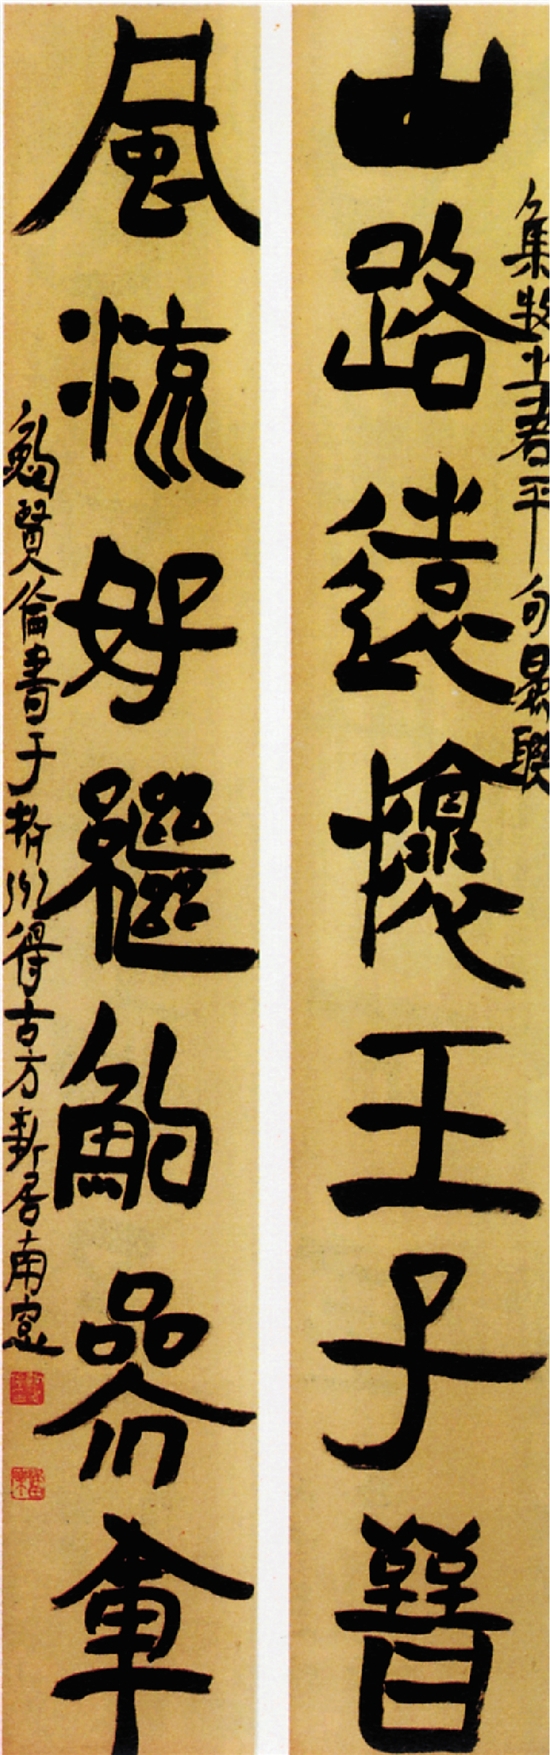 山路遠懷王子晉
集牧之君平句爲聯
風流好繼鮑參軍
鮑賢倫書于杭州得古方新居南窗